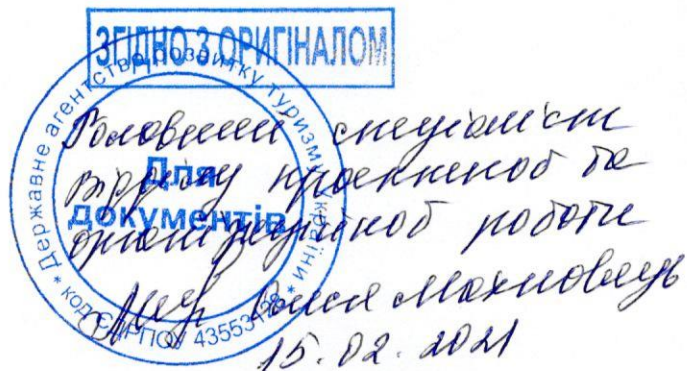 ЗГІДНО З ОРИГІНАЛОМ
Державне агентство розвитку туризму України
Для
документів
Головний спеціаліст
відділу проектної та
організаційної роботи
Махновець
15.02.2021